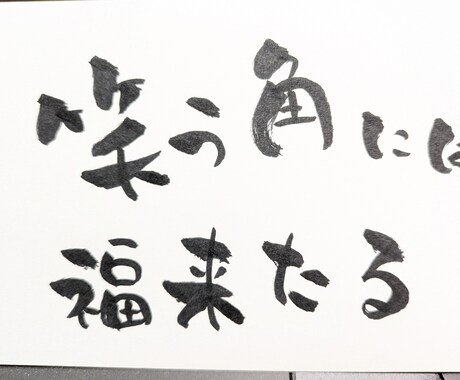 笑う角には
福来たる